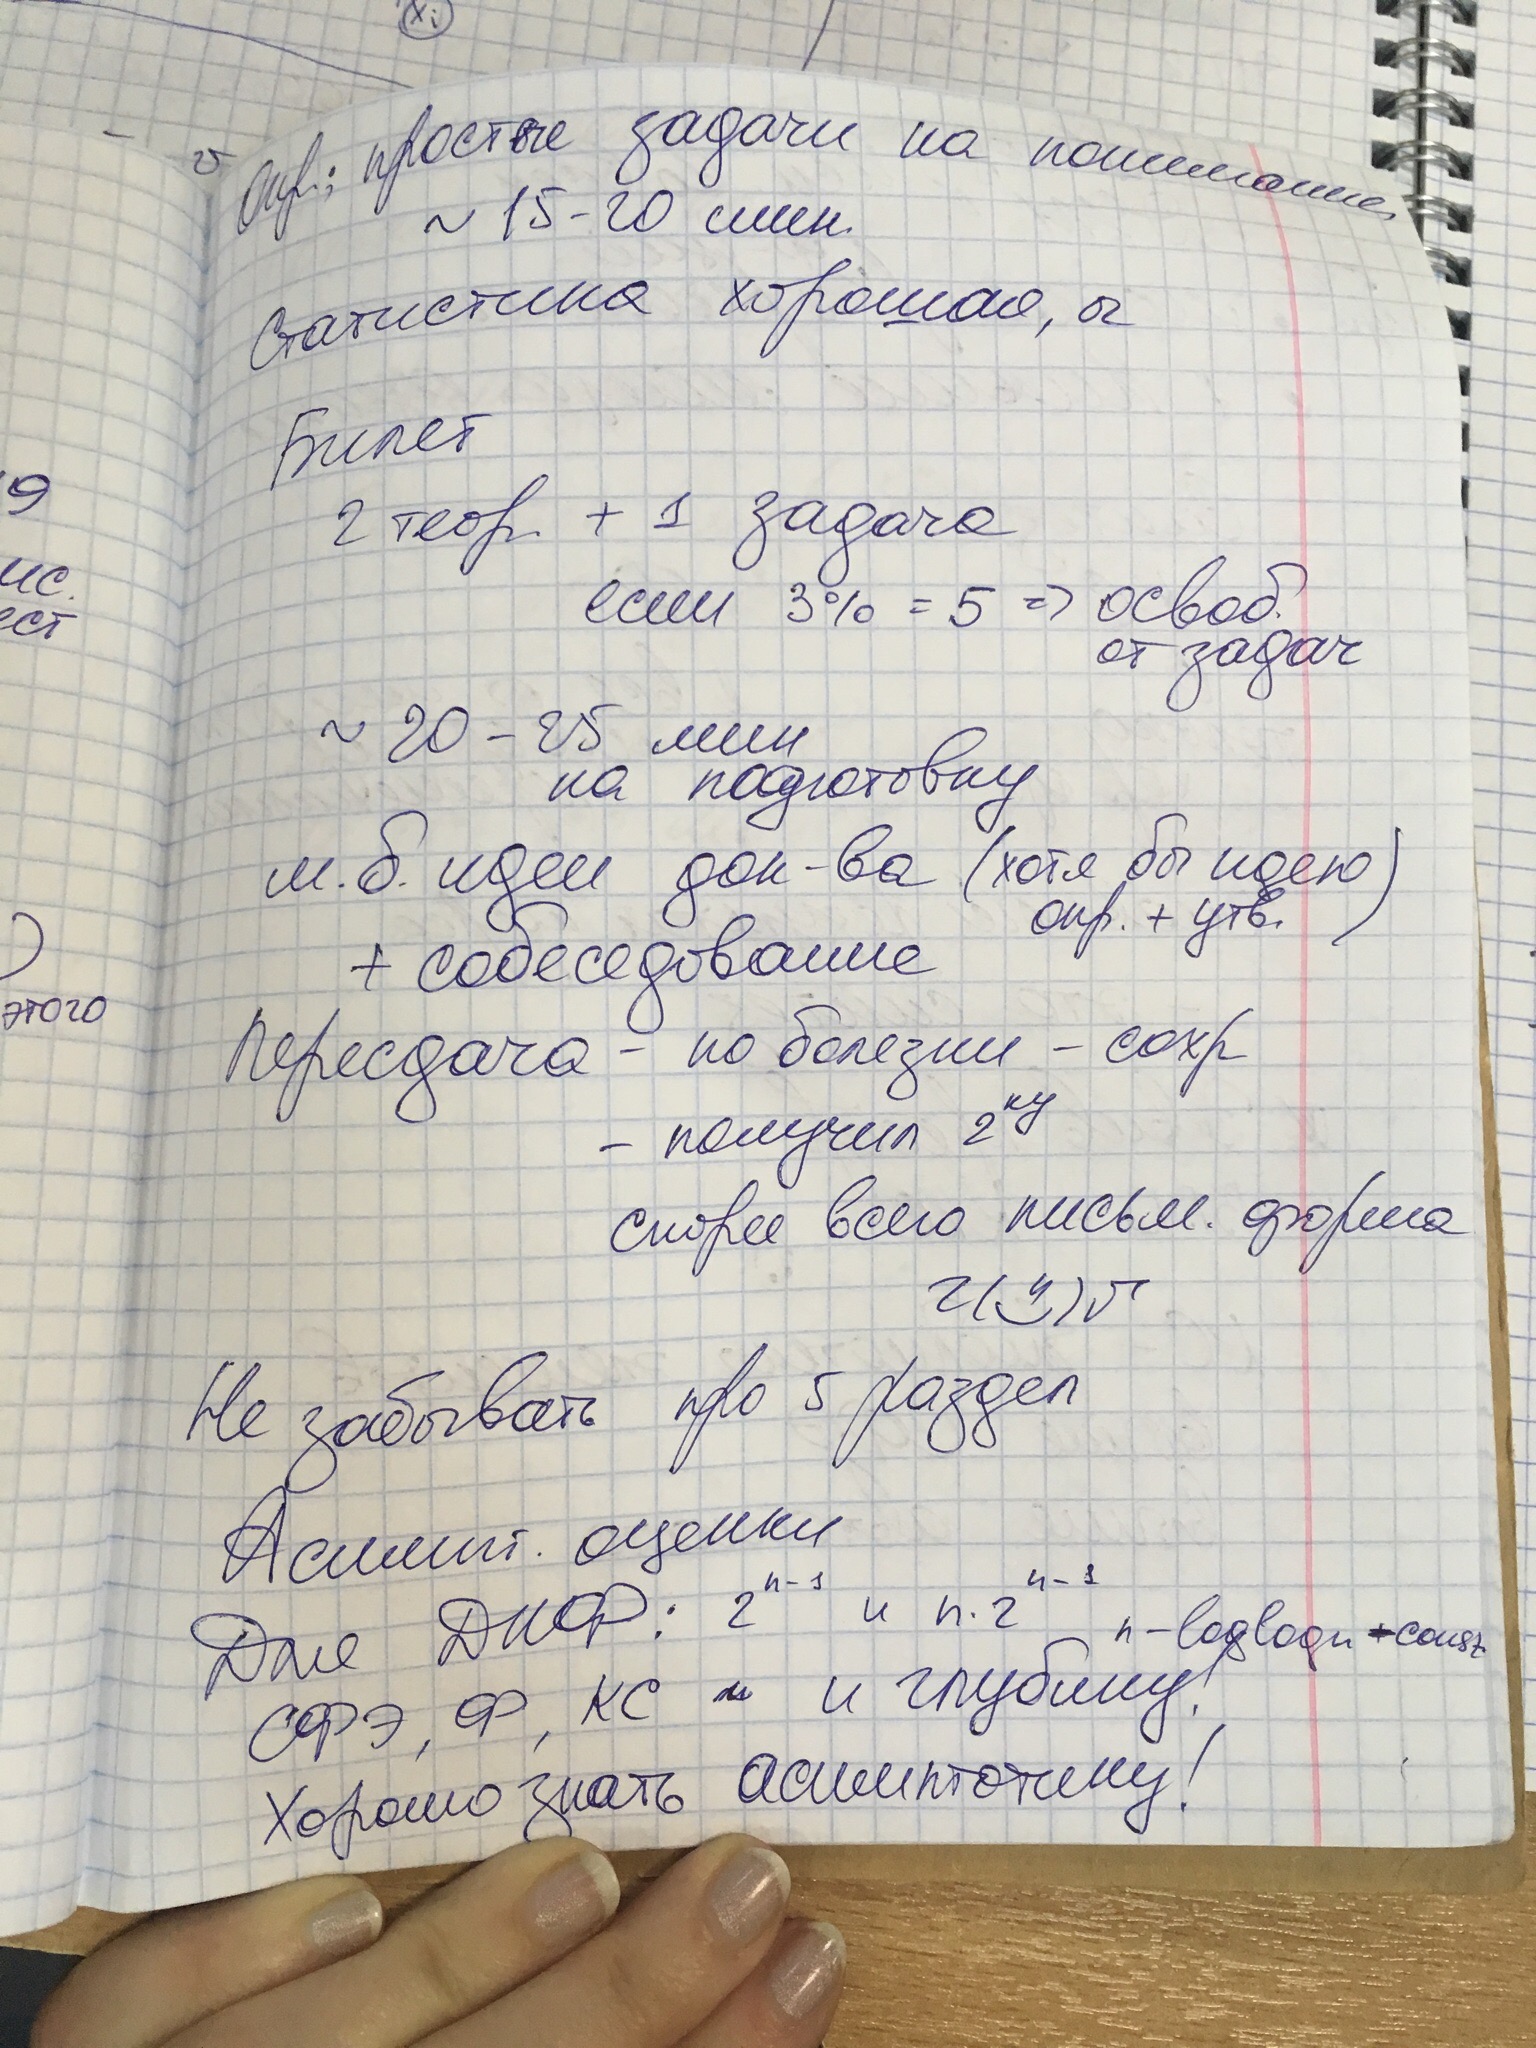 xᵢ
опр.; простые задачи на понимание,
~ 15-20 мин.
Статистика хорошая, а
Билет
2 теор. + 1 задача
если 3% = 5 => освоб.
от задач
~ 20 - 25 мин
на подготовку
м.б. идеи док-ва (хотя бы идею)
опр. + утв.
+ собеседование
Пересдача - по болезни - сохр
- получил 2ку
скорее всего письм. форма
Не забывать про 5 раздел
Асимпт. оценки
Для ДНФ: 2ⁿ⁻¹ и n·2ⁿ⁻¹
n-loglogn + const
СФЭ, Ф, КС и глубину!
Хорошо знать асимптотику!
ис.
ест
этого